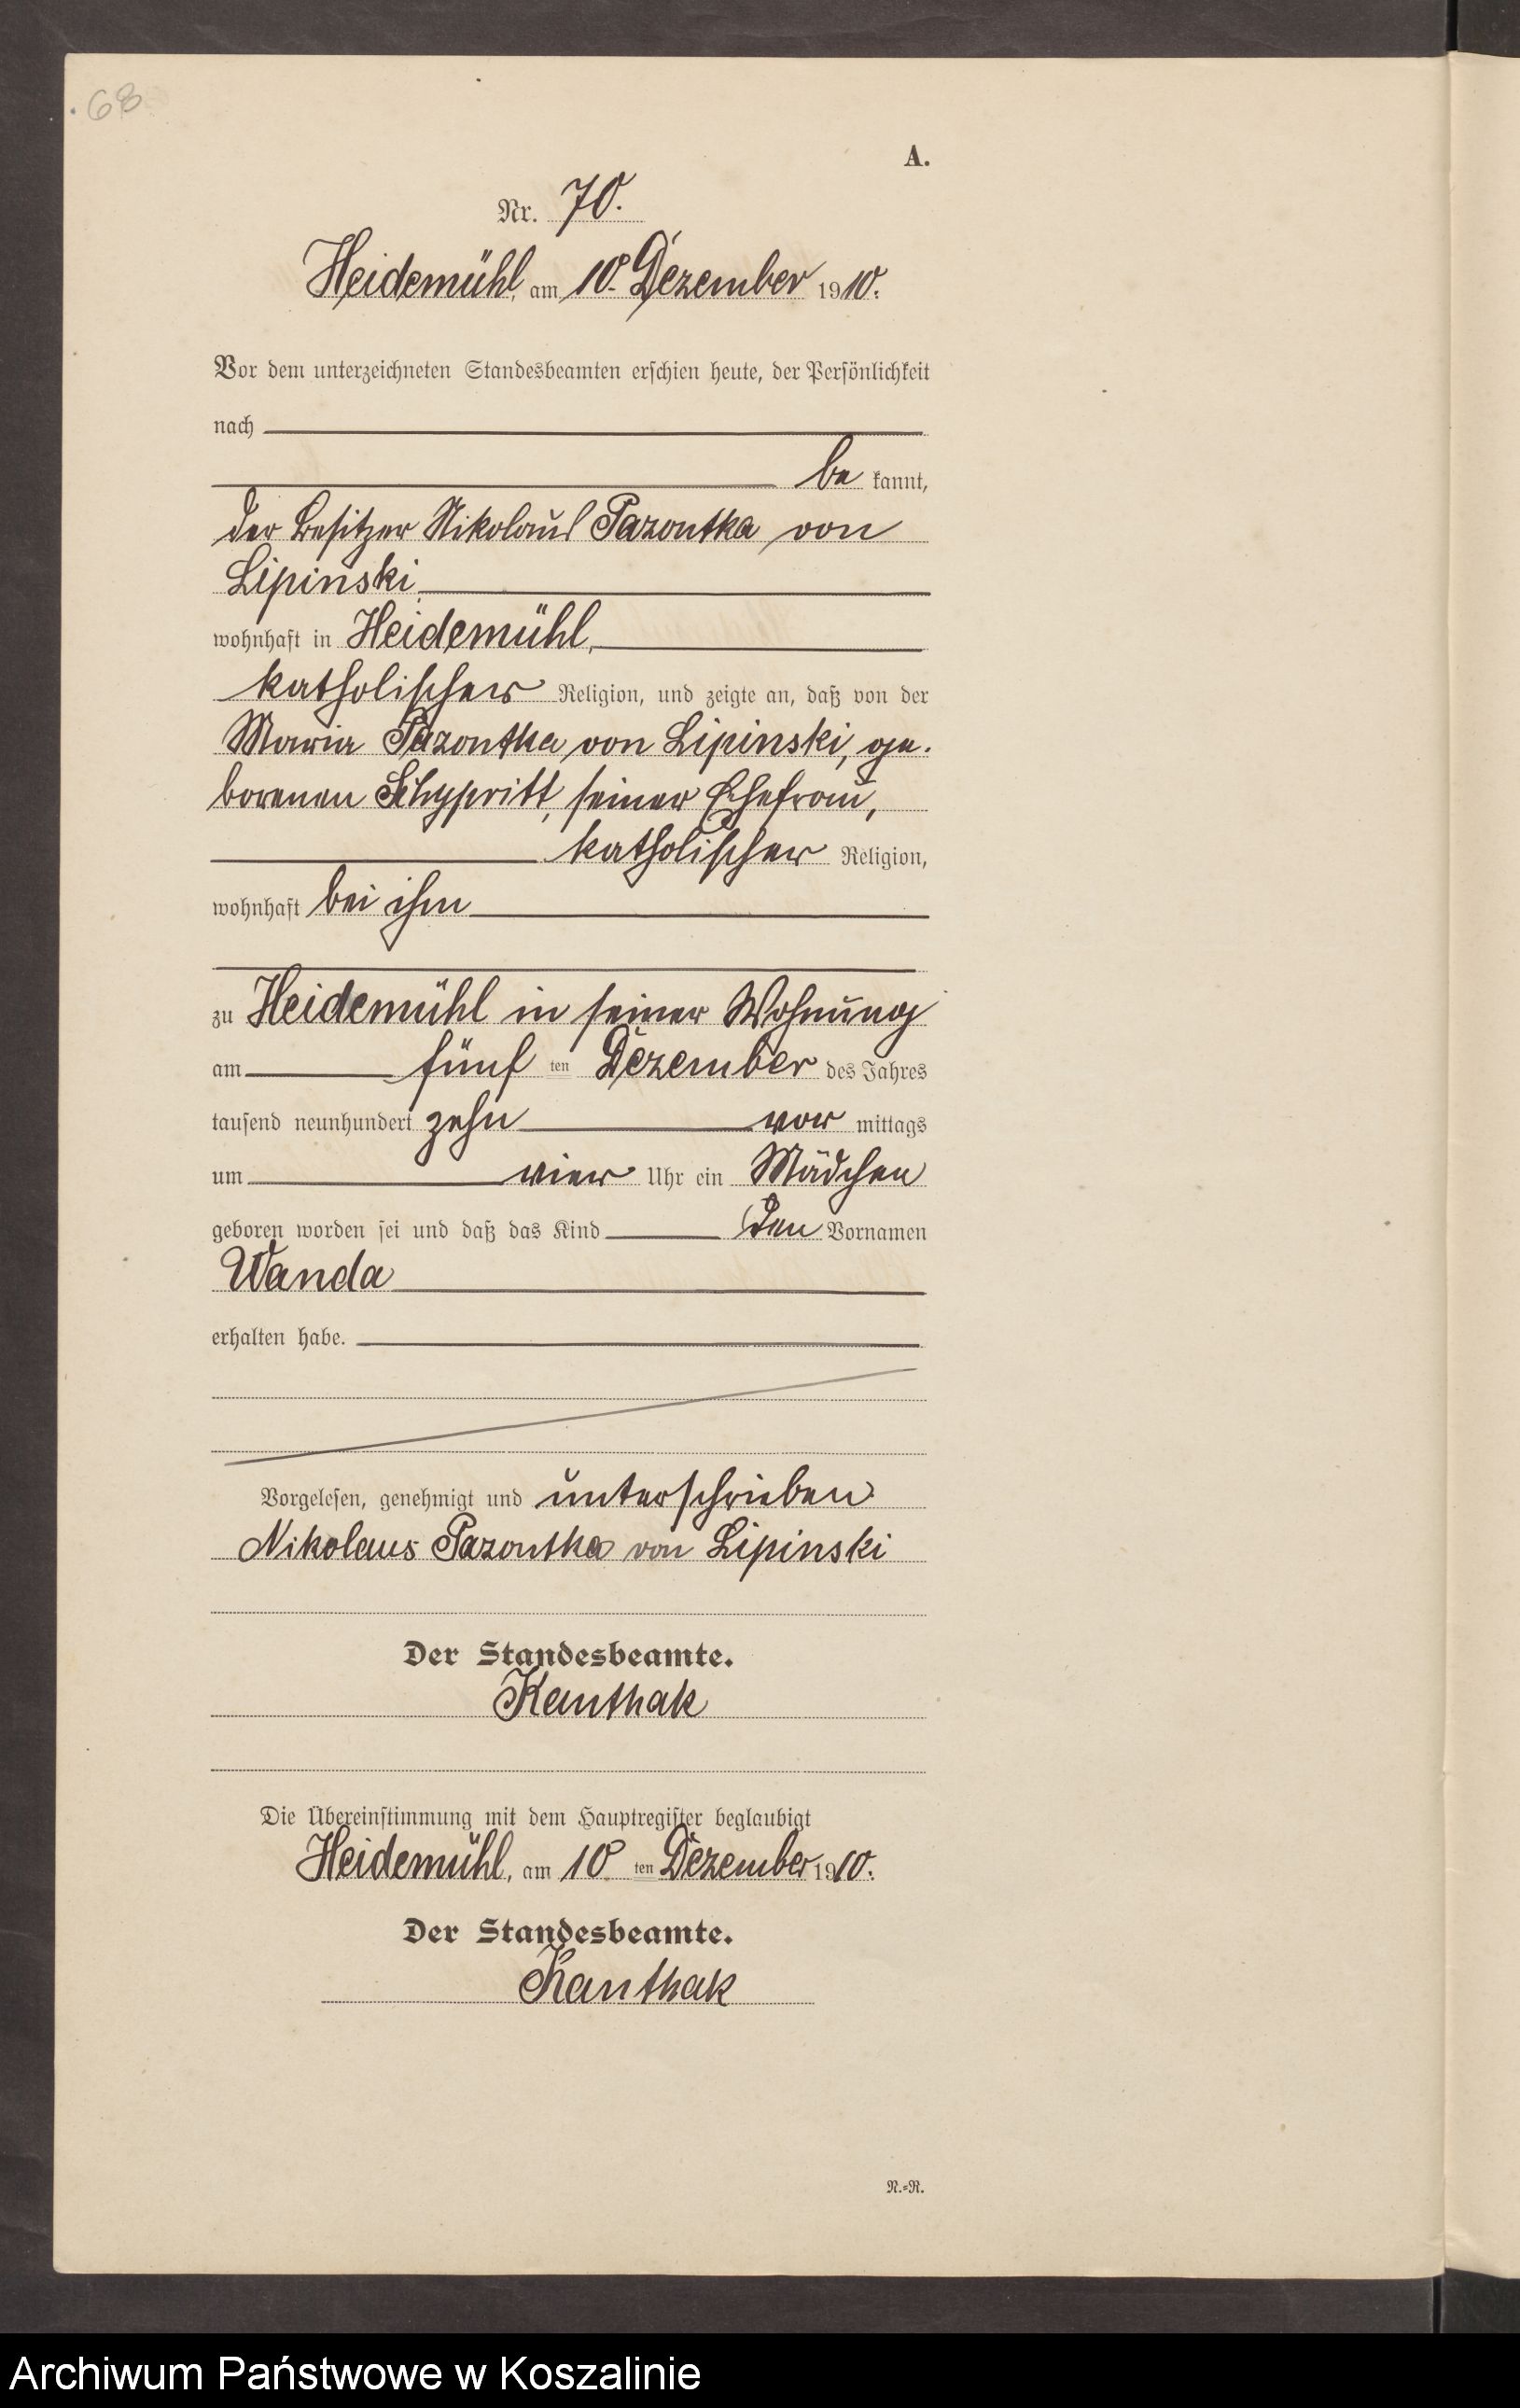 68
A.
Nr. 70.
Heidemühl, am 10. Dezember 1910.
Vor dem unterzeichneten Standesbeamten erschien heute, der Persönlichkeit
nach
be kannt,
der Besitzer Nikolaus Pazontka von
Lipinski,
wohnhaft in Heidemühl,
katholischer Religion, und zeigte an, daß von der
Maria Pazontka von Lipinski, ge-
borenen Schypritt, seiner Ehefrau,
katholischer Religion,
wohnhaft bei ihm
zu Heidemühl in seiner Wohnung
am fünf ten Dezember des Jahres
tausend neunhundert zehn vor mittags
um vier Uhr ein Mädchen
geboren worden sei und daß das Kind den Vornamen
Wanda
erhalten habe.
Vorgelesen, genehmigt und unterschrieben
Nikolaus Pazontka von Lipinski
Der Standesbeamte.
Kanthak
Die Übereinstimmung mit dem Hauptregister beglaubigt
Heidemühl, am 10 ten Dezember 1910.
Der Standesbeamte.
Kanthak
N.=R.
Archiwum Państwowe w Koszalinie